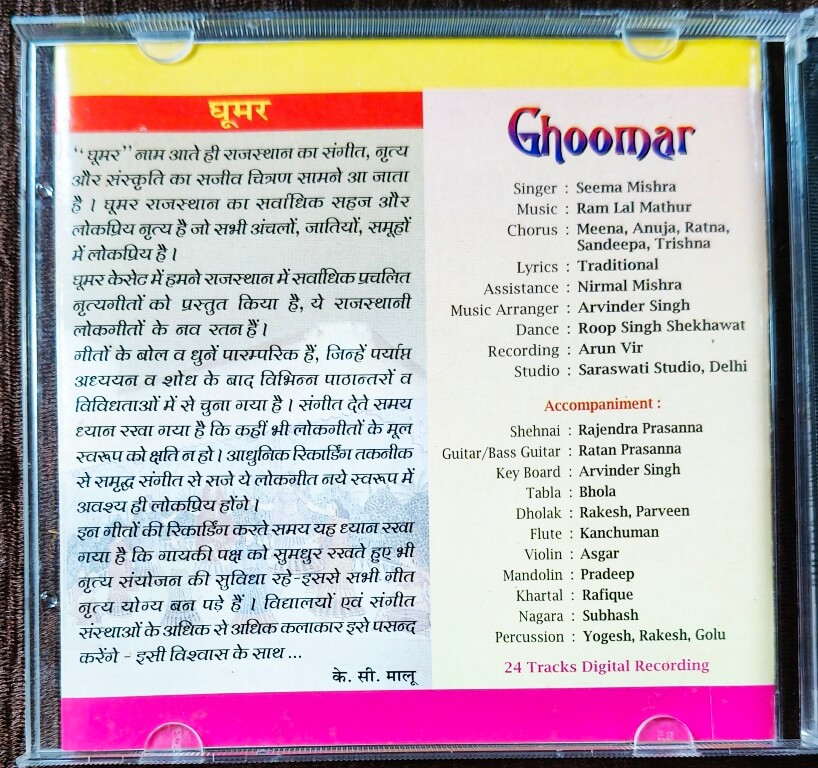 घूमर
“घूमर” नाम आते ही राजस्थान का संगीत, नृत्य
और संस्कृति का सजीव चित्रण सामने आ जाता
है । घूमर राजस्थान का सर्वाधिक सहज और
लोकप्रिय नृत्य है जो सभी अंचलों, जातियों, समूहों
में लोकप्रिय है ।
घूमर केसेट में हमने राजस्थान में सर्वाधिक प्रचलित
नृत्यगीतों को प्रस्तुत किया है, ये राजस्थानी
लोकगीतों के नव रतन हैं ।
गीतों के बोल व धुनें पारम्परिक हैं, जिन्हें पर्याप्त
अध्ययन व शोध के बाद विभिन्न पाठान्तरों व
विविधताओं में से चुना गया है । संगीत देते समय
ध्यान रखा गया है कि कहीं भी लोकगीतों के मूल
स्वरूप को क्षति न हो । आधुनिक रिकार्डिंग तकनीक
से समृद्ध संगीत से सजे ये लोकगीत नये स्वरूप में
अवश्य ही लोकप्रिय होंगे ।
इन गीतों की रिकार्डिंग करते समय यह ध्यान रखा
गया है कि गायकी पक्ष को सुमधुर रखते हुए भी
नृत्य संयोजन की सुविधा रहे-इससे सभी गीत
नृत्य योग्य बन पड़े हैं । विद्यालयों एवं संगीत
संस्थाओं के अधिक से अधिक कलाकार इसे पसन्द
करेंगे - इसी विश्वास के साथ ...
के. सी. मालू
Ghoomar
Singer : Seema Mishra
Music : Ram Lal Mathur
Chorus : Meena, Anuja, Ratna,
Sandeepa, Trishna
Lyrics : Traditional
Assistance : Nirmal Mishra
Music Arranger : Arvinder Singh
Dance : Roop Singh Shekhawat
Recording : Arun Vir
Studio : Saraswati Studio, Delhi
Accompaniment :
Shehnai : Rajendra Prasanna
Guitar/Bass Guitar : Ratan Prasanna
Key Board : Arvinder Singh
Tabla : Bhola
Dholak : Rakesh, Parveen
Flute : Kanchuman
Violin : Asgar
Mandolin : Pradeep
Khartal : Rafique
Nagara : Subhash
Percussion : Yogesh, Rakesh, Golu
24 Tracks Digital Recording